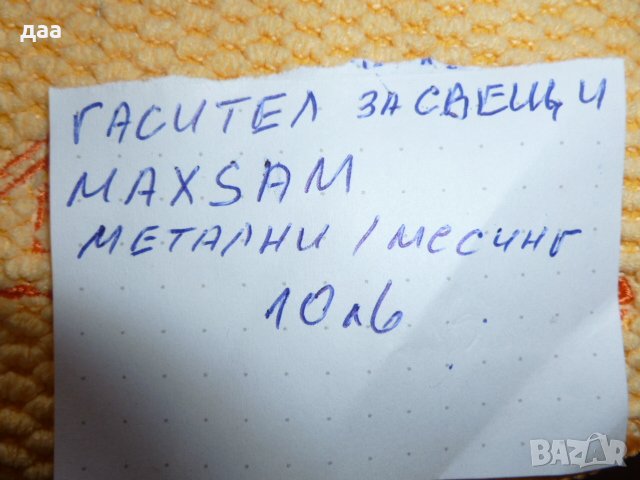 даа
ГАСИТЕЛ ЗА СВЕЩИ
MAXSAM
МЕТАЛНИ / МЕСИНГ
10 лв
BAZAR